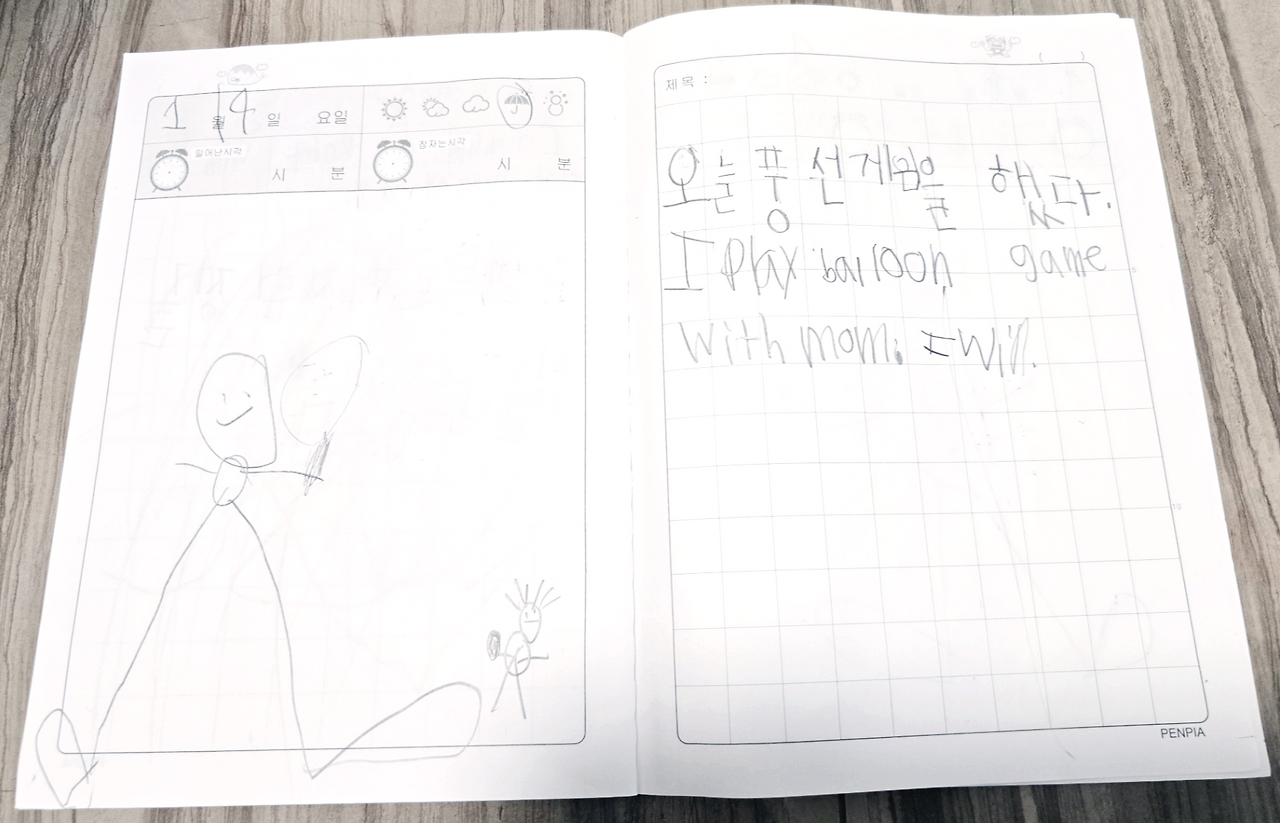 1 월 14 일 요일
일어난시각 시 분 잠자는시각 시 분
제목 :
오늘 풍선게임을 했다.
I Play balloon game
with mom. I will.
5
10
PENPIA